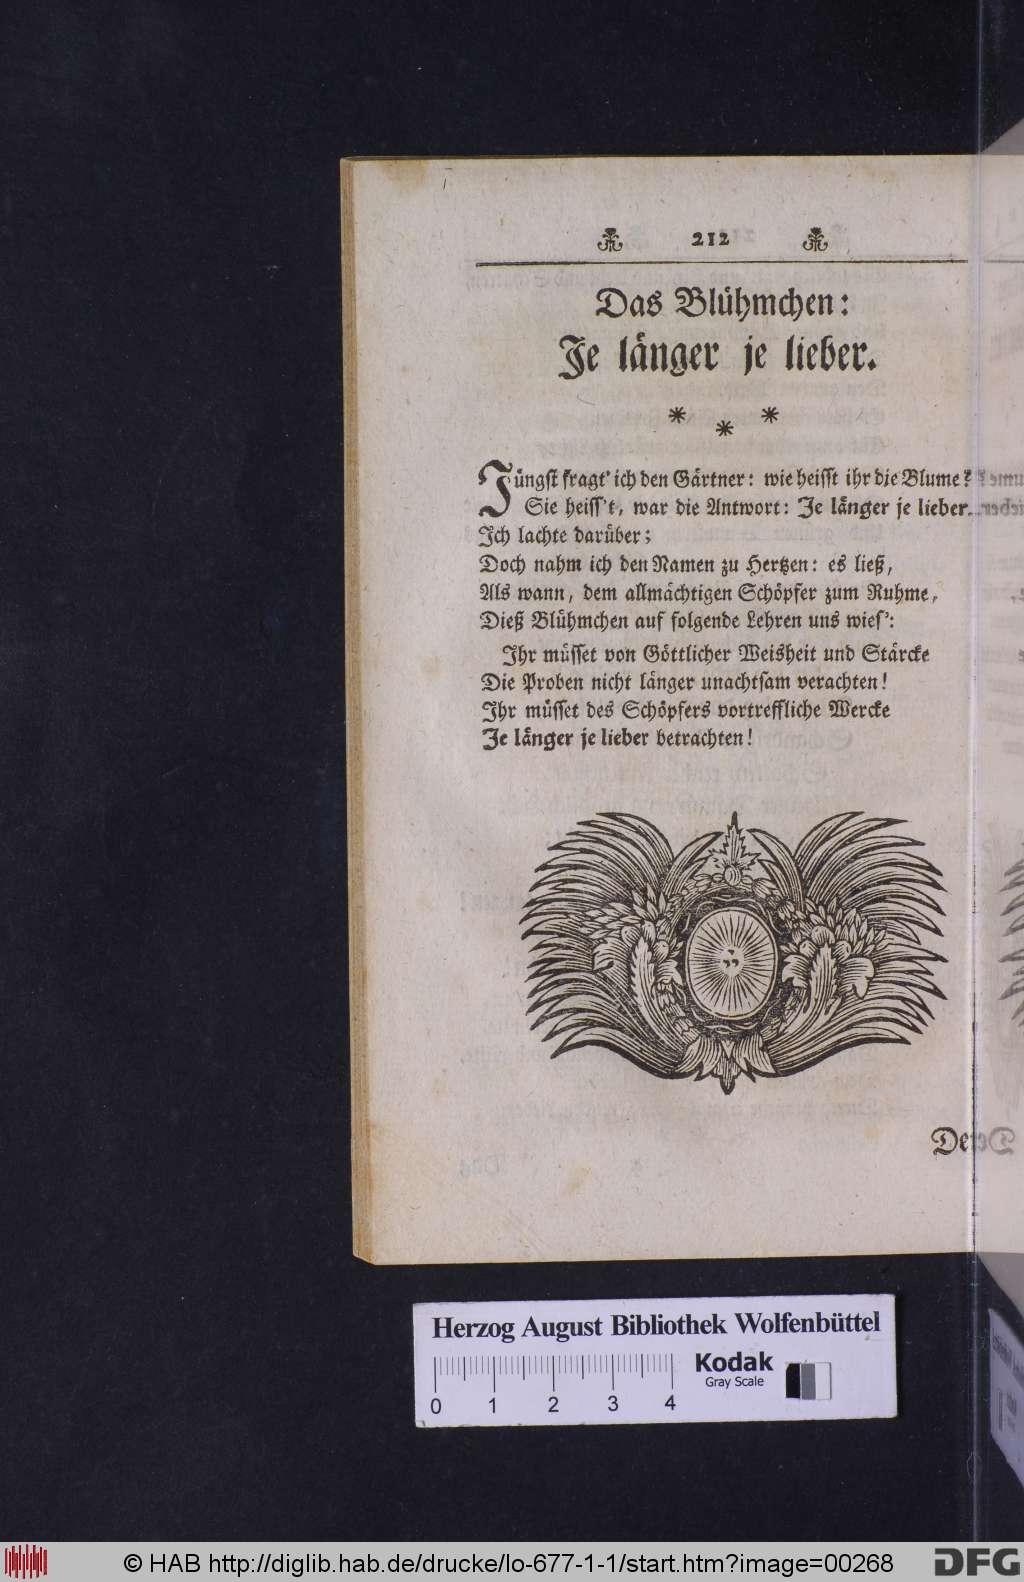 212
Das Blühmchen:
Je länger je lieber.
Jüngst fragt' ich den Gärtner: wie heisst ihr die Blume?
Sie heiss't, war die Antwort: Je länger je lieber.
Ich lachte darüber;
Doch nahm ich den Namen zu Hertzen: es ließ,
Als wann, dem allmächtigen Schöpfer zum Ruhme,
Dieß Blühmchen auf folgende Lehren uns wies':
Ihr müsset von Göttlicher Weisheit und Stärcke
Die Proben nicht länger unachtsam verachten!
Ihr müsset des Schöpfers vortreffliche Wercke
Je länger je lieber betrachten!
Herzog August Bibliothek Wolfenbüttel
Kodak
Gray Scale
0 1 2 3 4
© HAB http://diglib.hab.de/drucke/lo-677-1-1/start.htm?image=00268
DFG